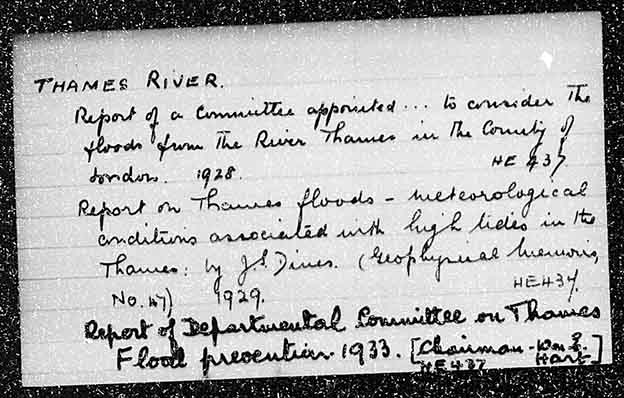 THAMES RIVER.
Report of a Committee appointed... to consider the
floods from the River Thames in the County of
London. 1928. HE 437.
Report on Thames floods - meteorological
conditions associated with high tides in the
Thames: by J.S. Dines. (Geophysical Memoirs,
No. 47) 1929. HE437.
Report of Departmental Committee on Thames
Flood prevention. 1933. [Chairman - Hart]
HE437